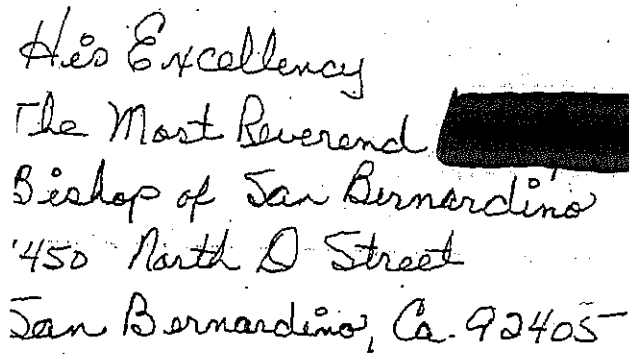 His Excellency
The Most Reverend
Bishop of San Bernardino
450 North D Street
San Bernardino, Ca. 92405